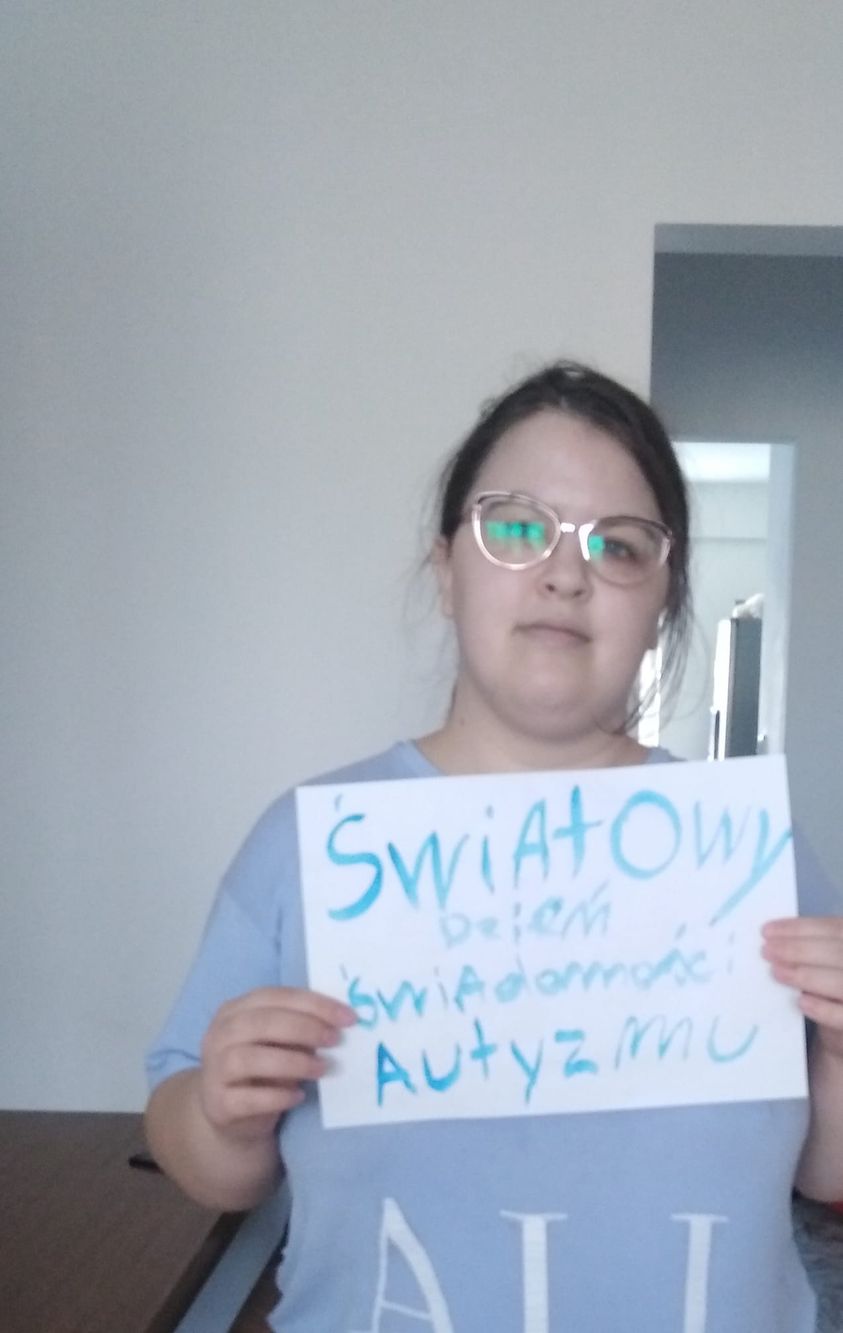 ŚwiAtOwy
Dzień
ŚwiAdomości
AUtyzmu